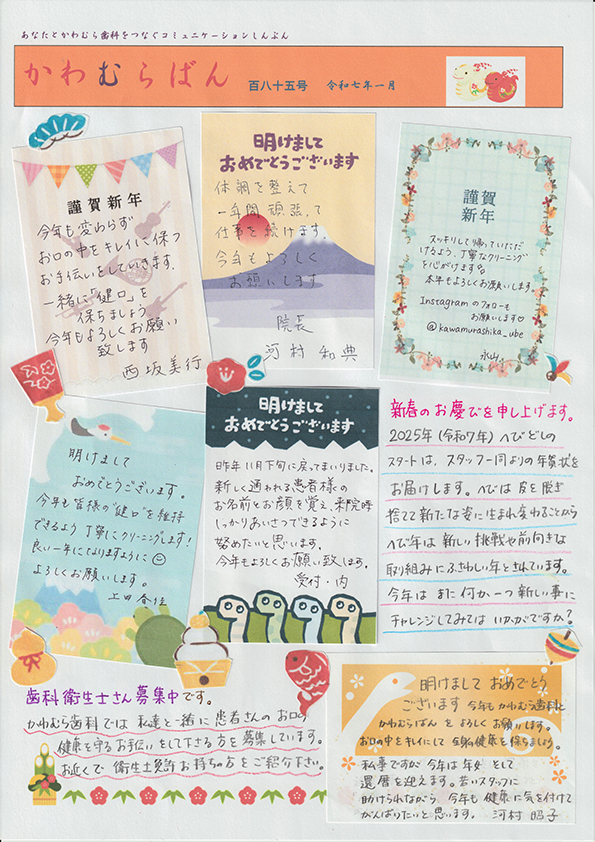 あなたとかわむら歯科をつなぐコミュニケーションしんぶん
かわむらばん 百八十五号 令和七年一月
謹賀新年
今年も変わらず
お口の中をキレイに保つ
お手伝いをしていきます。
一緒に「健口」を
保ちましょう
今年もよろしくお願い
致します
西坂美行
明けまして
おめでとうございます
体調を整えて
一年間頑張って
仕事を続けます。
今年もよろしく
お願いします
院長
河村和典
謹賀
新年
スッキリして帰っていただ
けるよう、丁寧なクリーニング
を心がけます
本年もよろしくお願いします
Instagramのフォローも
お願いします♡
@kawamurashika_ube
永山
明けまして
おめでとうございます。
今年も皆様の"健口"を維持
できるよう丁寧にクリーニングします!
良い一年になりますように
よろしくお願いします。
上田
明けまして
おめでとうございます
昨年11月下旬に戻ってまいりました。
新しく通われる患者様の
お名前とお顔を覚え、来院時
しっかりおあいさつできるように
努めたいと思います。
今年もよろしくお願い致します。
受付・内
新春のお慶びを申し上げます。
2025年(令和7年)へびどしの
スタートは、スタッフ一同よりの年賀状を
お届けします。へびは皮を脱ぎ
捨て新たな姿に生まれ変わることから
へび年は新しい挑戦や前向きな
取り組みにふさわしい年とされています。
今年はまた何か一つ新しい事に
チャレンジしてみてはいかがですか?
歯科衛生士さん募集中です。
かわむら歯科では私達と一緒に患者さんのお口の
健康を守るお手伝いをして下さる方を募集しています。
お近くで衛生士免許お持ちの方をご紹介下さい。
明けましておめでとう
ございます 今年もかわむら歯科と
かわむらばんをよろしくお願いします。
お口の中をキレイにして全身の健康を保ちましょう。
私事ですが今年は年女として
還暦を迎えます。若いスタッフに
助けられながら今年も健康に気を付けて
がんばりたいと思います。 河村昭子